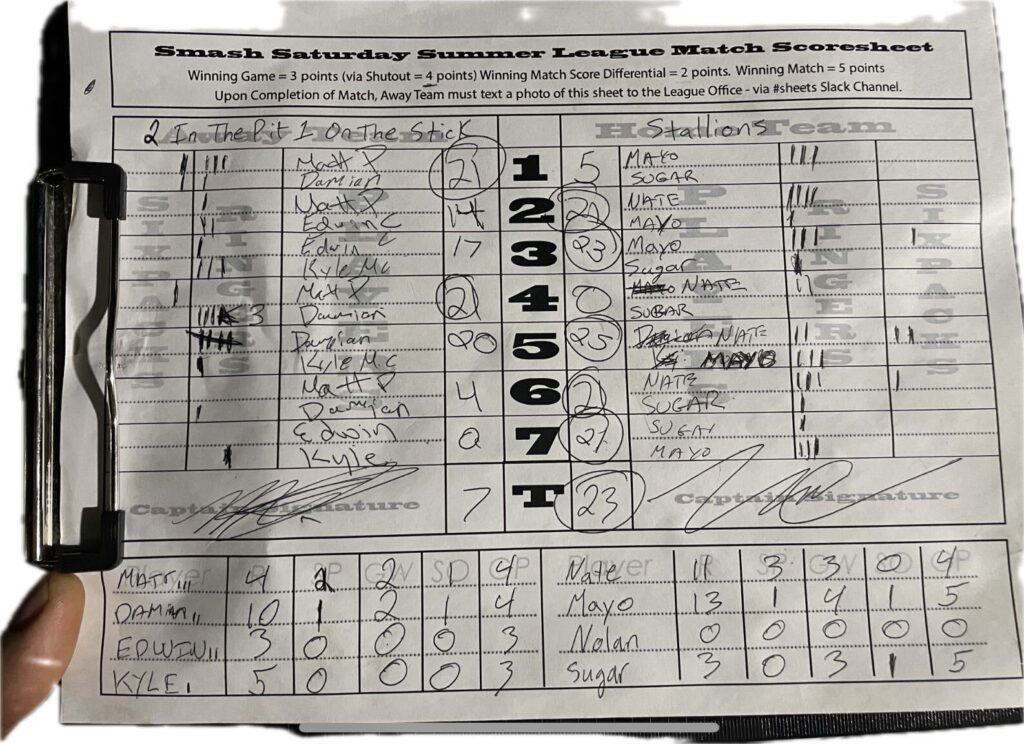 Smash Saturday Summer League Match Scoresheet
Winning Game = 3 points (via Shutout = 4 points) Winning Match Score Differential = 2 points. Winning Match = 5 points
Upon Completion of Match, Away Team must text a photo of this sheet to the League Office - via #sheets Slack Channel.
2 In The Pit 1 On The Stick Stallions
Away Team Home Team
SIXPACKS RINGERS PLAYERS PLAYERS RINGERS SIXPACKS
Matt P 21 1 5 MAYO
Damian SUGAR
Matt P 14 2 21 NATE
Edwin C MAYO
Edwin C 17 3 23 Mayo
Kyle Mc Sugar
Matt P 21 4 0 NATE
Damian 3 SUGAR
Damian 20 5 25 NATE
Kyle Mc MAYO
Matt P 4 6 21 NATE
Damian SUGAR
Edwin 0 7 21 SUGAR
Kyle MAYO
Captain Signature 7 T 23 Captain Signature
Player R SP GW SD GP Player R SP GW SD GP
MATT 4 2 2 1 4 Nate 11 3 3 0 4
DAMIAN 10 1 2 1 4 Mayo 13 1 4 1 5
EDWIN 3 0 0 0 3 Nolan 0 0 0 0 0
KYLE 5 0 0 0 3 Sugar 3 0 3 1 5